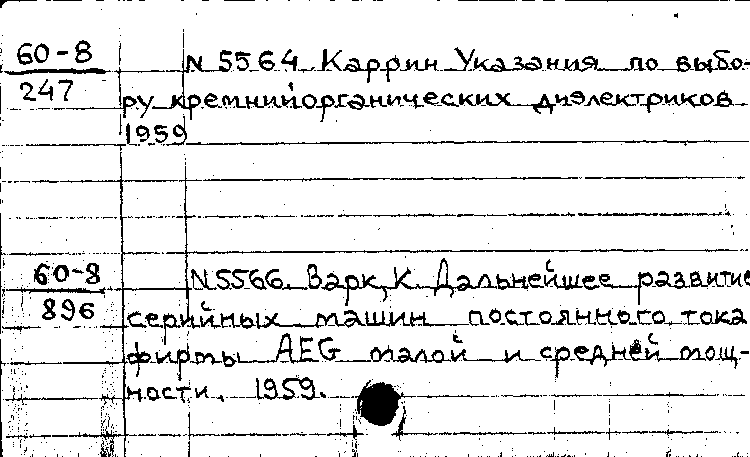 60-8
247
N 5564 Каррин Указания по выбо-
ру кремнийорганических диэлектриков
1959
60-8
896
N5566. Варк, К. Дальнейшее развитие
серийных машин постоянного тока
фирмы AEG малой и средней мощ-
ности. 1959.